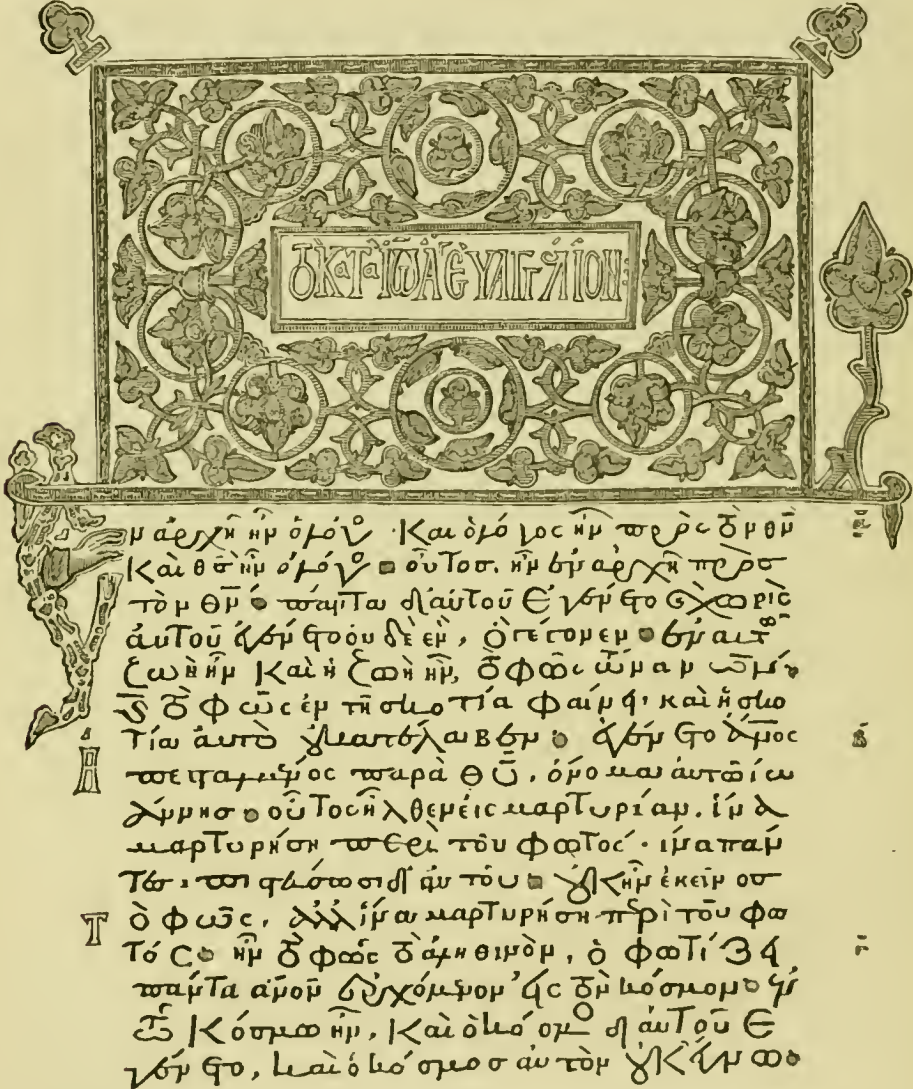 τὸ κατὰ ἰω ἅ ευαγγέλιον:
ν ἀρχῆ ἦν ὁ λόγο· Και ὁ λόγος ἦν πρὸς τὸν θν
Καὶ θσ ἦν ὁ λόγο οὗτοσ, ἦν ἐν ἀρχῆ πρὸσ
τὸν θν πάντα δἰ αὐτοῦ ἐγένετο ϗ χωρὶσ
ἀυτοῦ ἐγένετο οὐδὲ ἐν, ὃ γέγονεν ἐν αυτ
ζωὴ ἦν Καὶ ἡ ζωὴ ἦν, τὸ φῶς τῶν ανων
ϗ τὸ φῶς ἐν τῆ σκοτία φαίνει· καὶ ἡ σκο
τία αυτὸ ου κατέλαβεν ἐγένετο ἄνος
ἀπεσταλμένος παρὰ θυ, ὄνομα αὐτῶ ἰω
άννησ οὗτος ἦλθεν εἰς μαρτυρίαν, ἵνα
μαρτυρήση περὶ τοῦ φωτός· ἵνα πάν
τες πιστεύσωσι δἰ αυτοῦ ουκ ἦν ἐκεῖνοσ
τὸ φῶς, ἀλλ ἵνα μαρτυρήση περὶ τοῦ φω
τός ἦν τὸ φῶς τὸ ἀληθινὸν, ὃ φωτίζει
πάντα ανον ἐρχόμενον εἰς τὸν κόσμον ἐν
τῶ Κόσμω ἦν, Καὶ ὁ κόσμο δἰ αὐτοῦ ἐ
γένετο, καὶ ὁ κόσμοσ αυτὸν ουκ ἔγνω